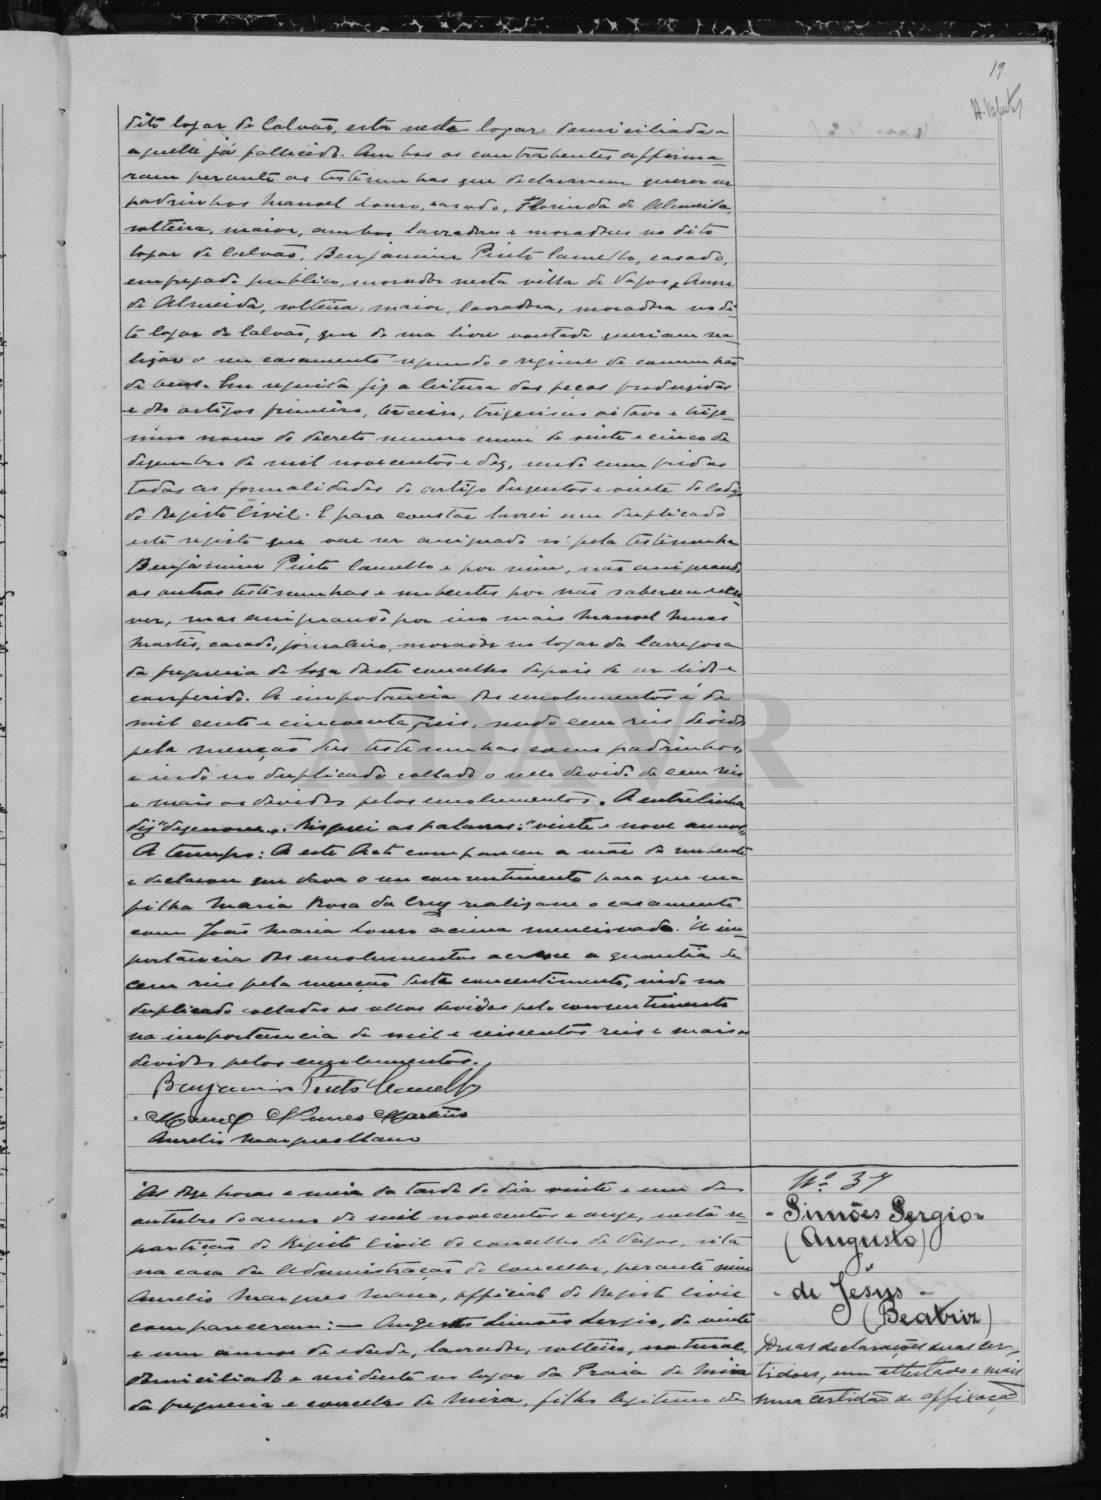 19
dito logar de Calvão, esta neste logar domiciliada e
aquelle já fallecido. Ambos os contrahentes affirma-
ram perante as testemunhas que declararam querer ser
padrinhos Manoel Louro, casado, Florinda de Almeida,
solteira, maior, ambos lavradores e moradores no dito
logar de Calvão, Benjamim Pinto Camello, casado,
empregado publico, morador nesta villa de Vagos, e Anna
de Almeida, solteira, maior, lavradora, moradora no di-
to logar de Calvão, que de sua livre vontade queriam rea-
lizar o seu casamento segundo o regime de communhão
de bens. Em seguida fiz a leitura das peças produzidas
e dos artigos primeiro, terceiro, trigesimo oitavo e trige-
simo nono do decreto numero um de vinte e cinco de
dezembro de mil novecentos e dez, sendo cumpridas
todas as formalidades do artigo duzentos e vinte do Codigo
do Registo Civil. E para constar lavrei em duplicado
este registo que vae ser assignado só pela testemunha
Benjamim Pinto Camello e por mim, não assignando
as outras testemunhas e nubentes por não saberem escre-
ver, mas assignando por isso mais Manoel Nunes
Martins, casado, jornaleiro, morador no logar da Carregosa
da freguezia de Soza deste concelho depois de ser lido e
conferido. A importancia dos emolumentos é de
mil cento e cincoenta reis, sendo cem reis devidos
pela menção das testemunhas como padrinhos,
e indo no duplicado collado o sello devido de cem reis
e mais os devidos pelos emolumentos. A entrelinha
diz "dezenove". Risquei as palavras: "vinte e nove annos"
A tempo: A este acto compareceu a mãe da nubente
e declarou que dava o seu consentimento para que sua
filha Maria Rosa da Cruz realizasse o casamento
com João Maria Louro acima mencionado. A im-
portancia dos emolumentos acresce a quantia de
cem reis pela menção deste consentimento, indo no
duplicado collados os sellos devidos pelo consentimento
na importancia de mil e seiscentos reis e mais os
devidos pelos emolumentos.
Benjamim Pinto Camello
Manoel Nunes Martins
Aurelio Marques Mano
Nº 37
Simões Sergio
(Augusto)
de Jesus
(Beatriz)
Duas declarações, duas cer-
tidões, um attestado e mais
uma certidão de affixação
Ás doze horas e meia da tarde do dia vinte e um de
outubro do anno de mil novecentos e onze, nesta re-
partição do Registo Civil do concelho de Vagos, sita
na casa da Administração do Concelho, perante mim
Aurelio Marques Mano, official do Registo Civil
compareceram: — Augusto Simões Sergio, de vinte
e um annos de edade, lavrador, solteiro, natural,
domiciliado e residente no logar da Praia de Mira
da freguezia e concelho de Mira, filho legitimo de
ADAVR